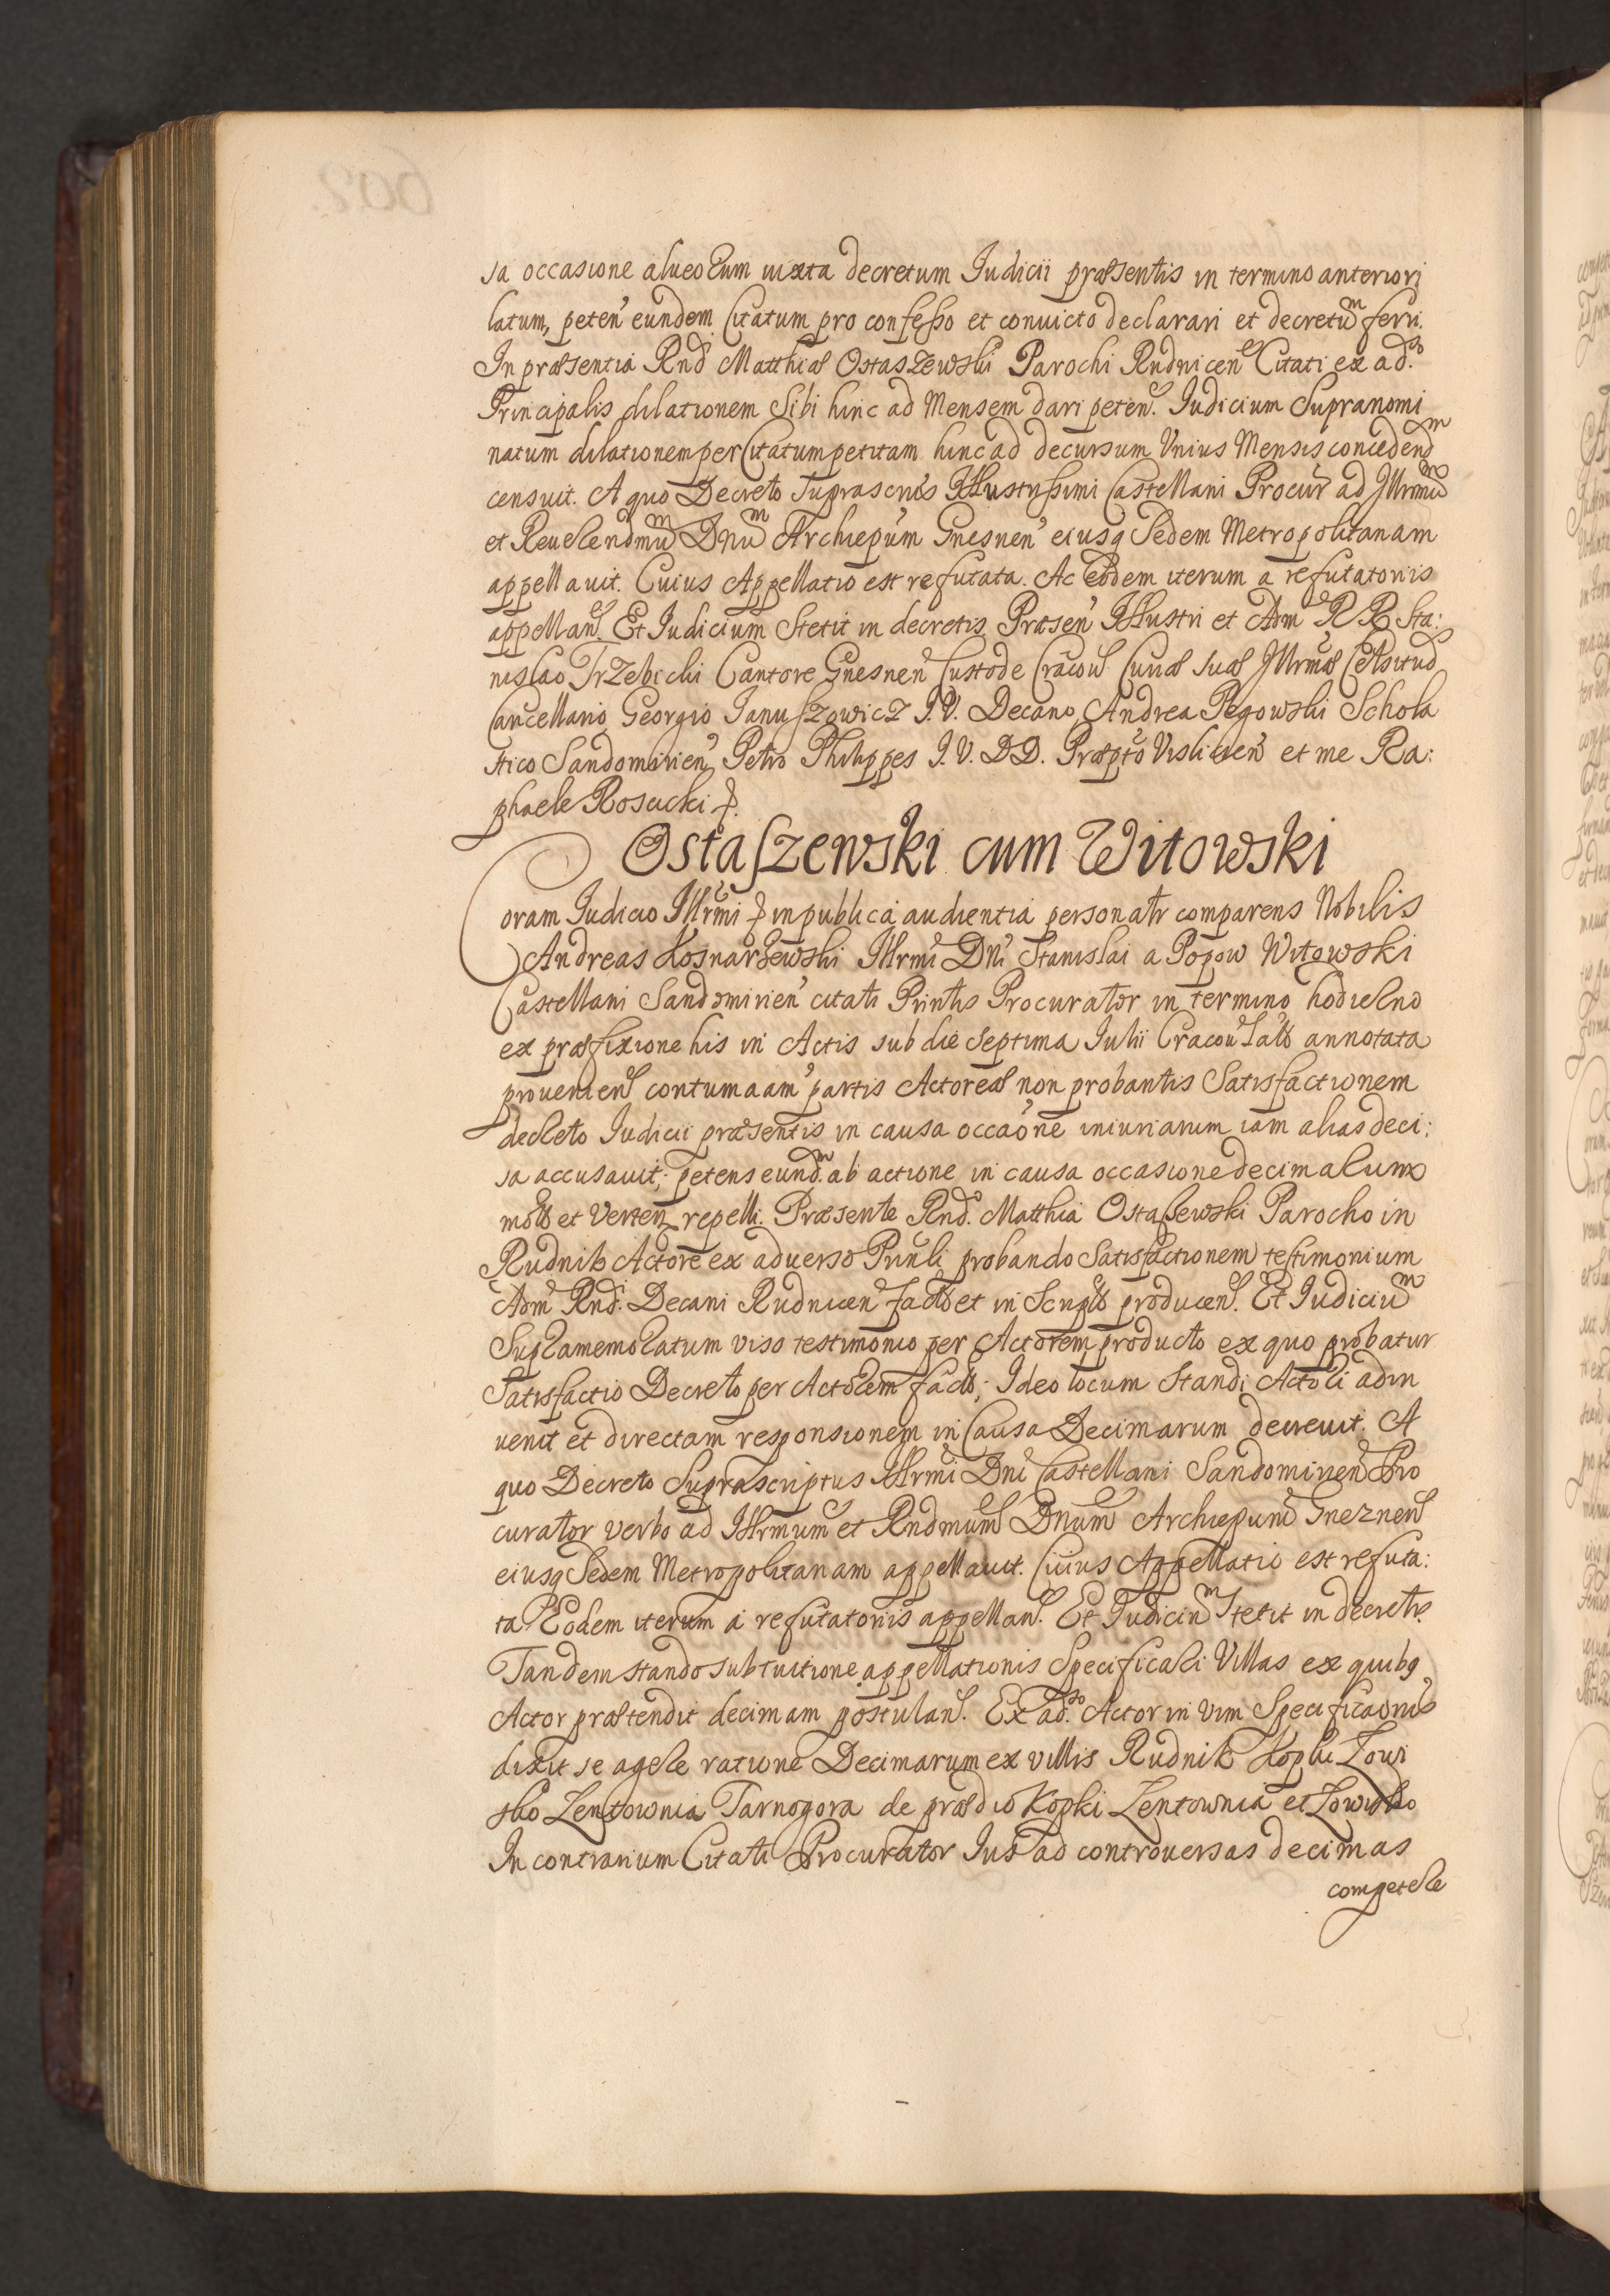 sa occasione alueorum iuxta decretum Iudicii præsentis in termino anteriori
latum, peten̄ eundem Citatum pro confesso et conuicto declarari et decretūm ferri.
In præsentia Rnd Matthiæ Ostaszewski Parochi Rudnicen̄ Citati ex adso
Principalis dilationem Sibi hinc ad Mensem dari peten̄. Iudicium Supranomi
natum dilationem per Citatum petitam hinc ad decursum Vnius Mensis concedendm
censuit. A quo Decreto suprascrūs Illustrissimi Castellani Procur ad Illrmūm
et Reuerendmūm Dnūm Archiepūm Gnesnen̄ eiusq Sedem Metropolitanam
appellauit. Cuius Appellatio est refutata. Ac Eodem iterum a refutatoriis
appellan̄. Et Iudicium Stetit in decretis Præsen̄ Illustri et Adm R R Sta:
nislao Trzebicki Cantore Gnesnen̄ Custode Cracou Curiæ suæ Illrmæ Celsitud
Cancellario, Georgio Januszowicz I. V. Decano, Andrea Pegowski Schola
stico Sandomirien̄, Petro Philippes I. V. DD. Præpto Vislicien̄ et me Ra:
phaele Rosucki
Ostaszewski cum Witowski
Coram Iudicio Illrmi in publica audientia personalr comparens Nobilis
Andreas Kosnarzewski Illrmi Dni Stanislai a Popow Witowski
Castellani Sandomirien̄ citati Printis Procurator in termino hodierno
ex præfixione his in Actis sub die Septima Iulii Cracou annotata
prouenien̄ contumaciam partis Actoreæ non probantis Satisfactionem
decreto Iudicii præsentis in causa occaone iniuriarum iam alias deci:
sa accusauit; petens eundm ab actione in causa occasione decimarum
mota et Verten repelli. Præsente Rndo. Matthia Ostasewski Parocho in
Rudnik Actore ex aduerso Prinli probando Satisfactionem testimonium
Adm Rndi. Decani Rudnicen̄ facto et in Scripto producen̄. Et Iudiciūm
Supramemoratum viso testimonio per Actorem producto ex quo probatur
Satisfactio Decreto per Actorem facto; Ideo locum Standi Actori adin
uenit et directam responsionem in Causa Decimarum decreuit. A
quo Decreto Suprascriptus Illrmi Dni Castellani Sandomirien̄ Pro
curator verbo ad Illrmum et Rndmum Dnum Archiepum Gneznen̄
eiusq Sedem Metropolitanam appellauit. Cuius Appellatio est refuta:
ta Eodem iterum a refutatoriis appellan̄. Et Iudiciūm stetit in decretis
Tandem stando sub tuitione appellationis Specificari Villas ex quibq
Actor prætendit decimam postulan̄. Ex adso. Actor in vim Specificaonis
dixit se agere ratione Decimarum ex villis Rudnik Kopki Lowi
sko Lentownia Tarnogora de prædio Kopki Lentownia et Lowisko
In contrarium Citati Procurator Ius ad controuersas decimas
competere